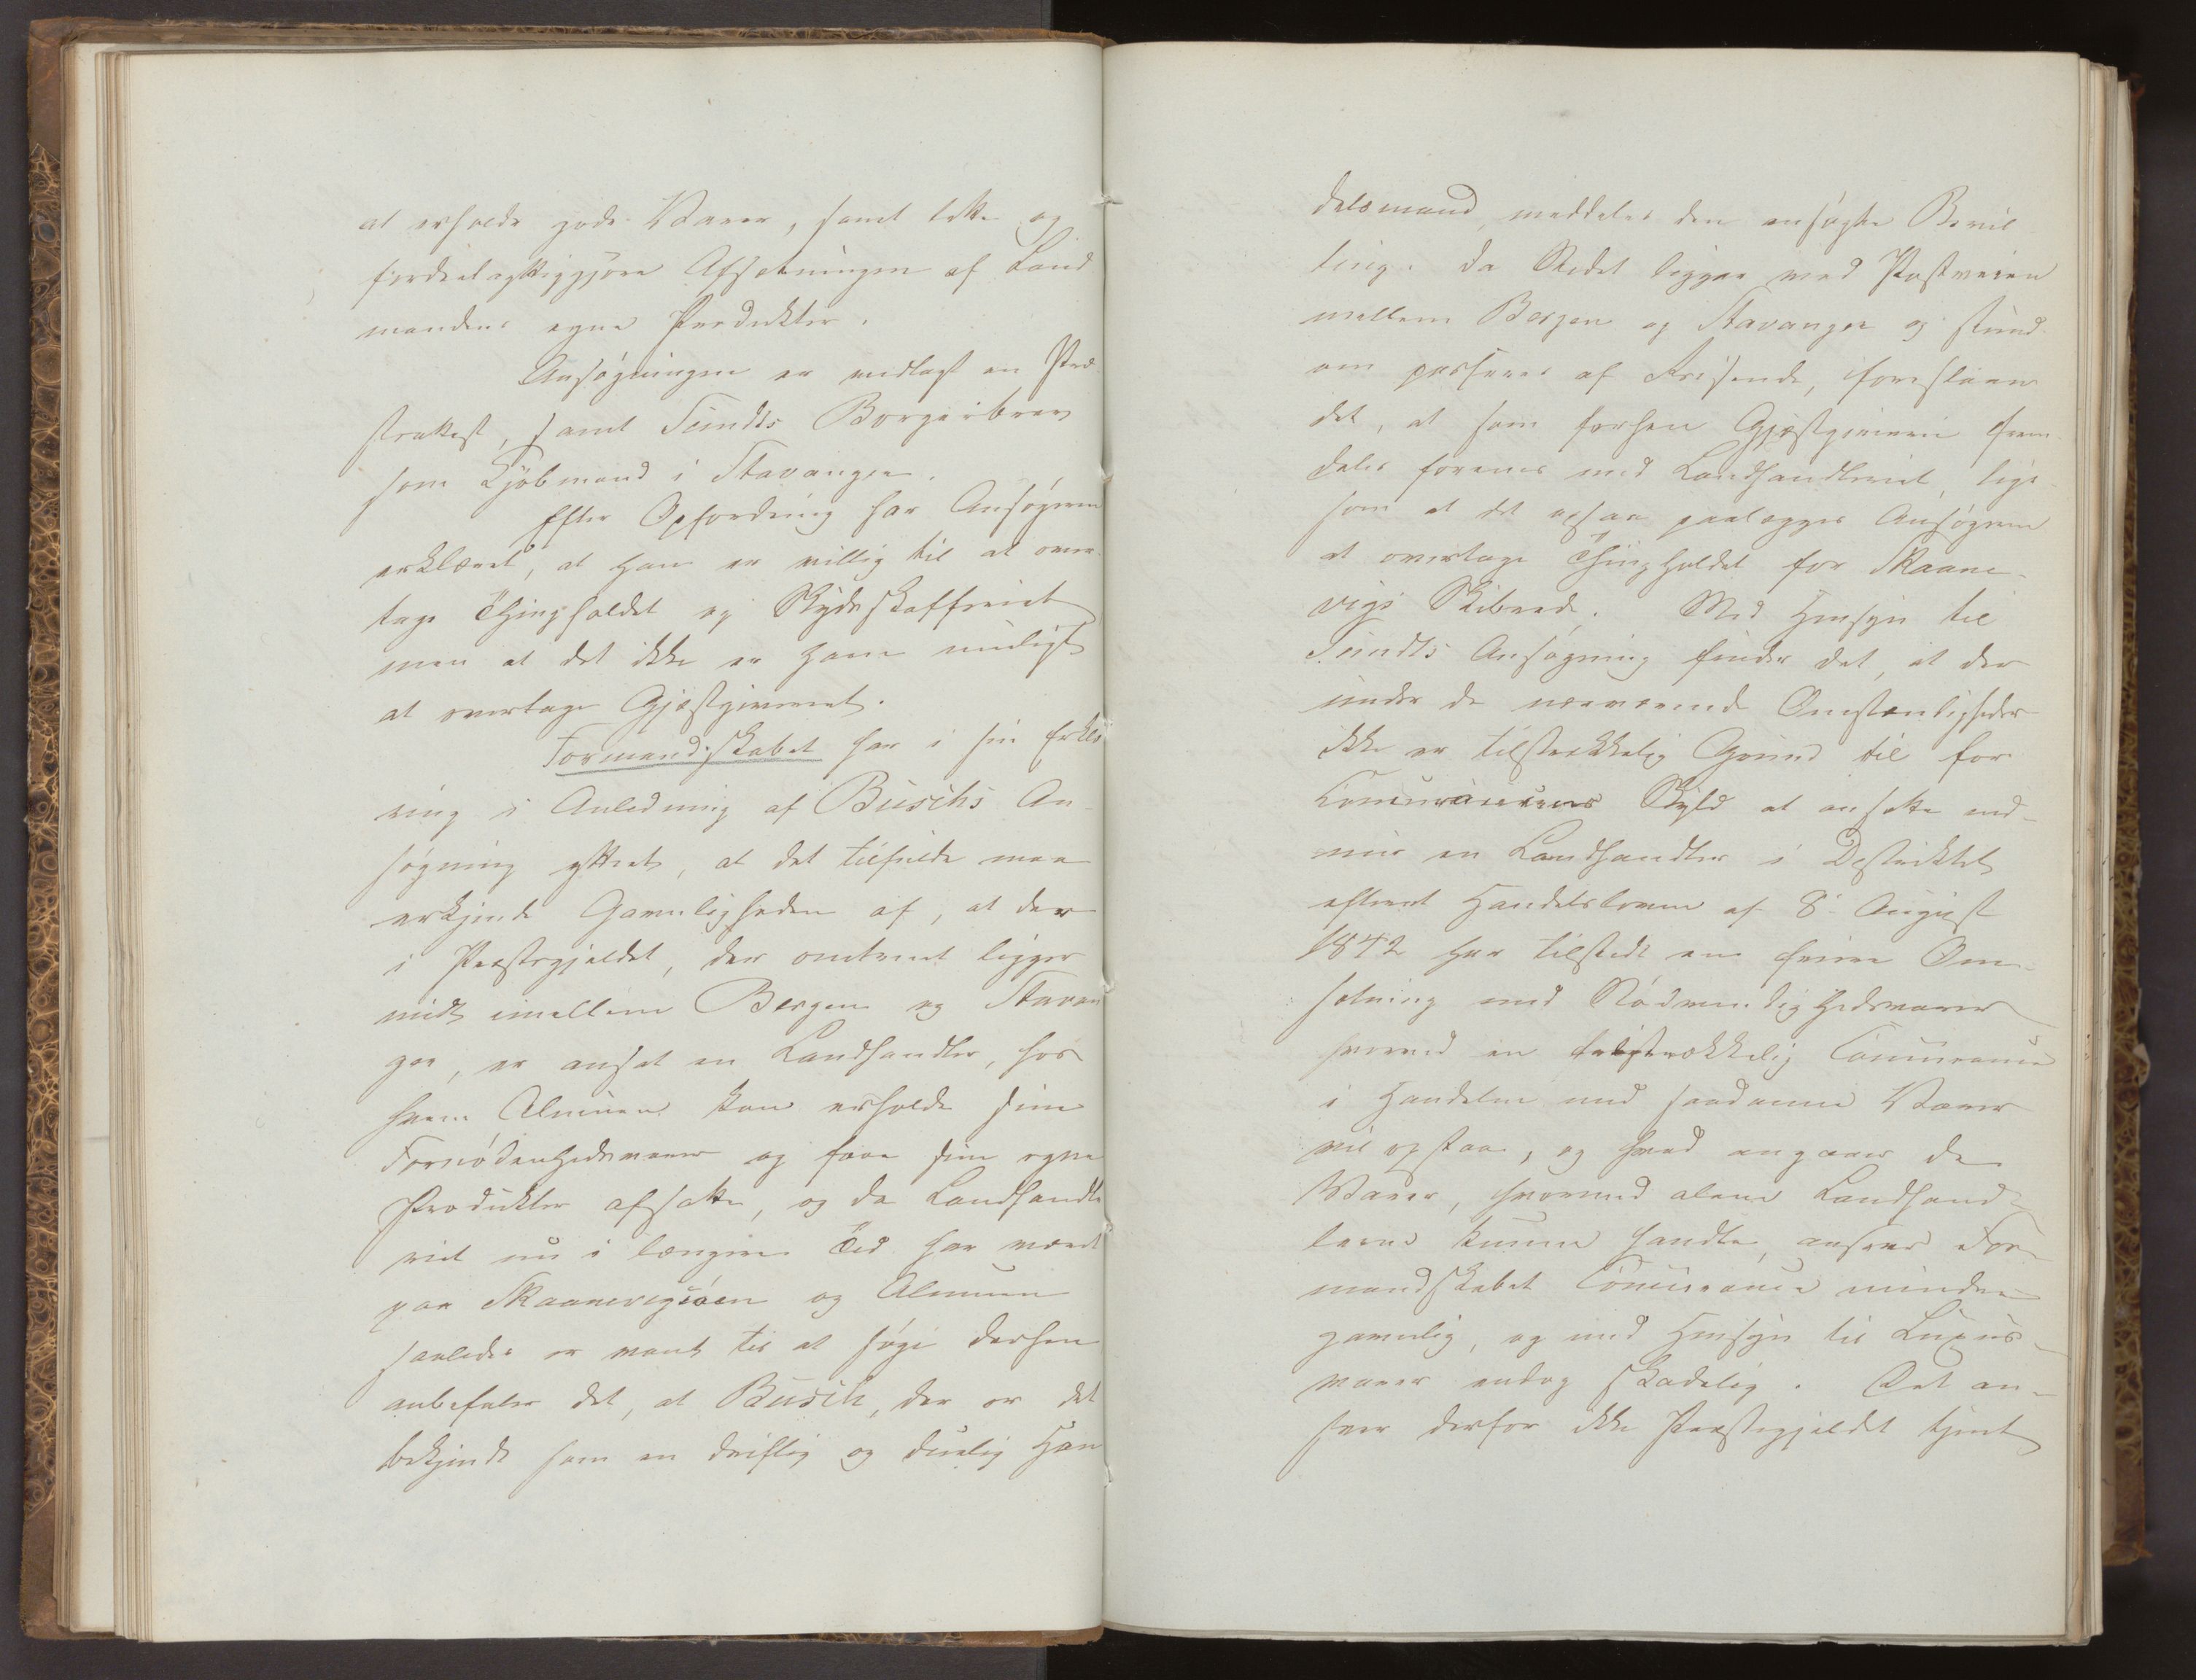 at erholde gode Varer, samt lette og
fordeelagtiggjøre Afsætningen af Land
mandens egne Produkter.
Ansøgningen er vedlagt en Præ-
steattest, samt Sundts Borgerbrev
som Kjøbmand i Stavanger.
Efter Opfordring har Ansøgeren
erklæret, at han er villig til at over-
tage Thingholdet og Skydsskafferiet
men at det ikke er ham muligt
at overtage Gjæstgiveriet.
Formandskabet har i sin Erklæ
ring i Anledning af Buschs An-
søgning yttret, at det tilfulde maa
erkjende Gavnligheden af, at der
i Præstegjeldet, der omtrent ligger
midt imellem Bergen og Stavan
ger, er ansat en Landhandler, hos
hvem Almuen kan erholde sine
Fornødenhedsvarer og faae sine egne
Produkter afsatte, og da Landhandle
riet nu i længere Tid har været
paa Skaanevigsøen og Almuen
saaledes er vant til at søge derhen
anbefaler det, at Busch, der er det
bekjendt som en driftig og duelig Han
delsmand, meddeles den ansøgte Bevil
ling. Da Stedet ligger ved Postveien
mellem Bergen og Stavanger og stund-
om passeres af Reisende, foreslaaer
det, at som forhen Gjæstgiveri frem-
deles forenes med Landhandleriet, lige-
som at det ogsaa paalægges Ansøgeren
at overtage Thingholdet for Skaane-
vigs Skibrede. Med Hensyn til
Sundts Ansøgning finder det, at der
under de nærværende Omstændigheder
ikke er tilstrækkelig Grund til for
Concurrencens Skyld at ansætte end-
nu en Landhandler i Distriktet
efterat Handelsloven af 8de August
1842 har tilstedt en friere Om-
sætning med Nødvendighedsvarer
hvorved en tilstrækkelig Concurrence
i Handelen med saadanne Varer
vil opstaae, og hvad angaaer de
Varer, hvormed alene Landhand-
lerne kunne handle, ansees For-
mandskabet Concurrence mindre
gavnlig, og med Hensyn til Luxus-
varer endog skadelig. Det an-
seer derfor ikke Præstegjeldet tjent